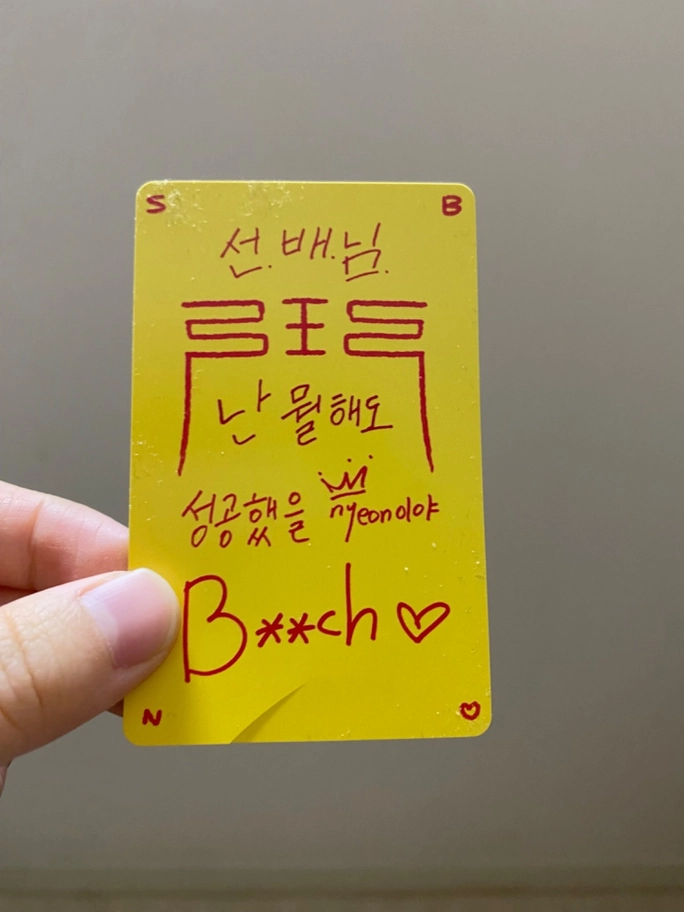 S B
선.배.님.
王
난 뭘해도
성공했을 nyeon이야
B**ch ♡
N ♡